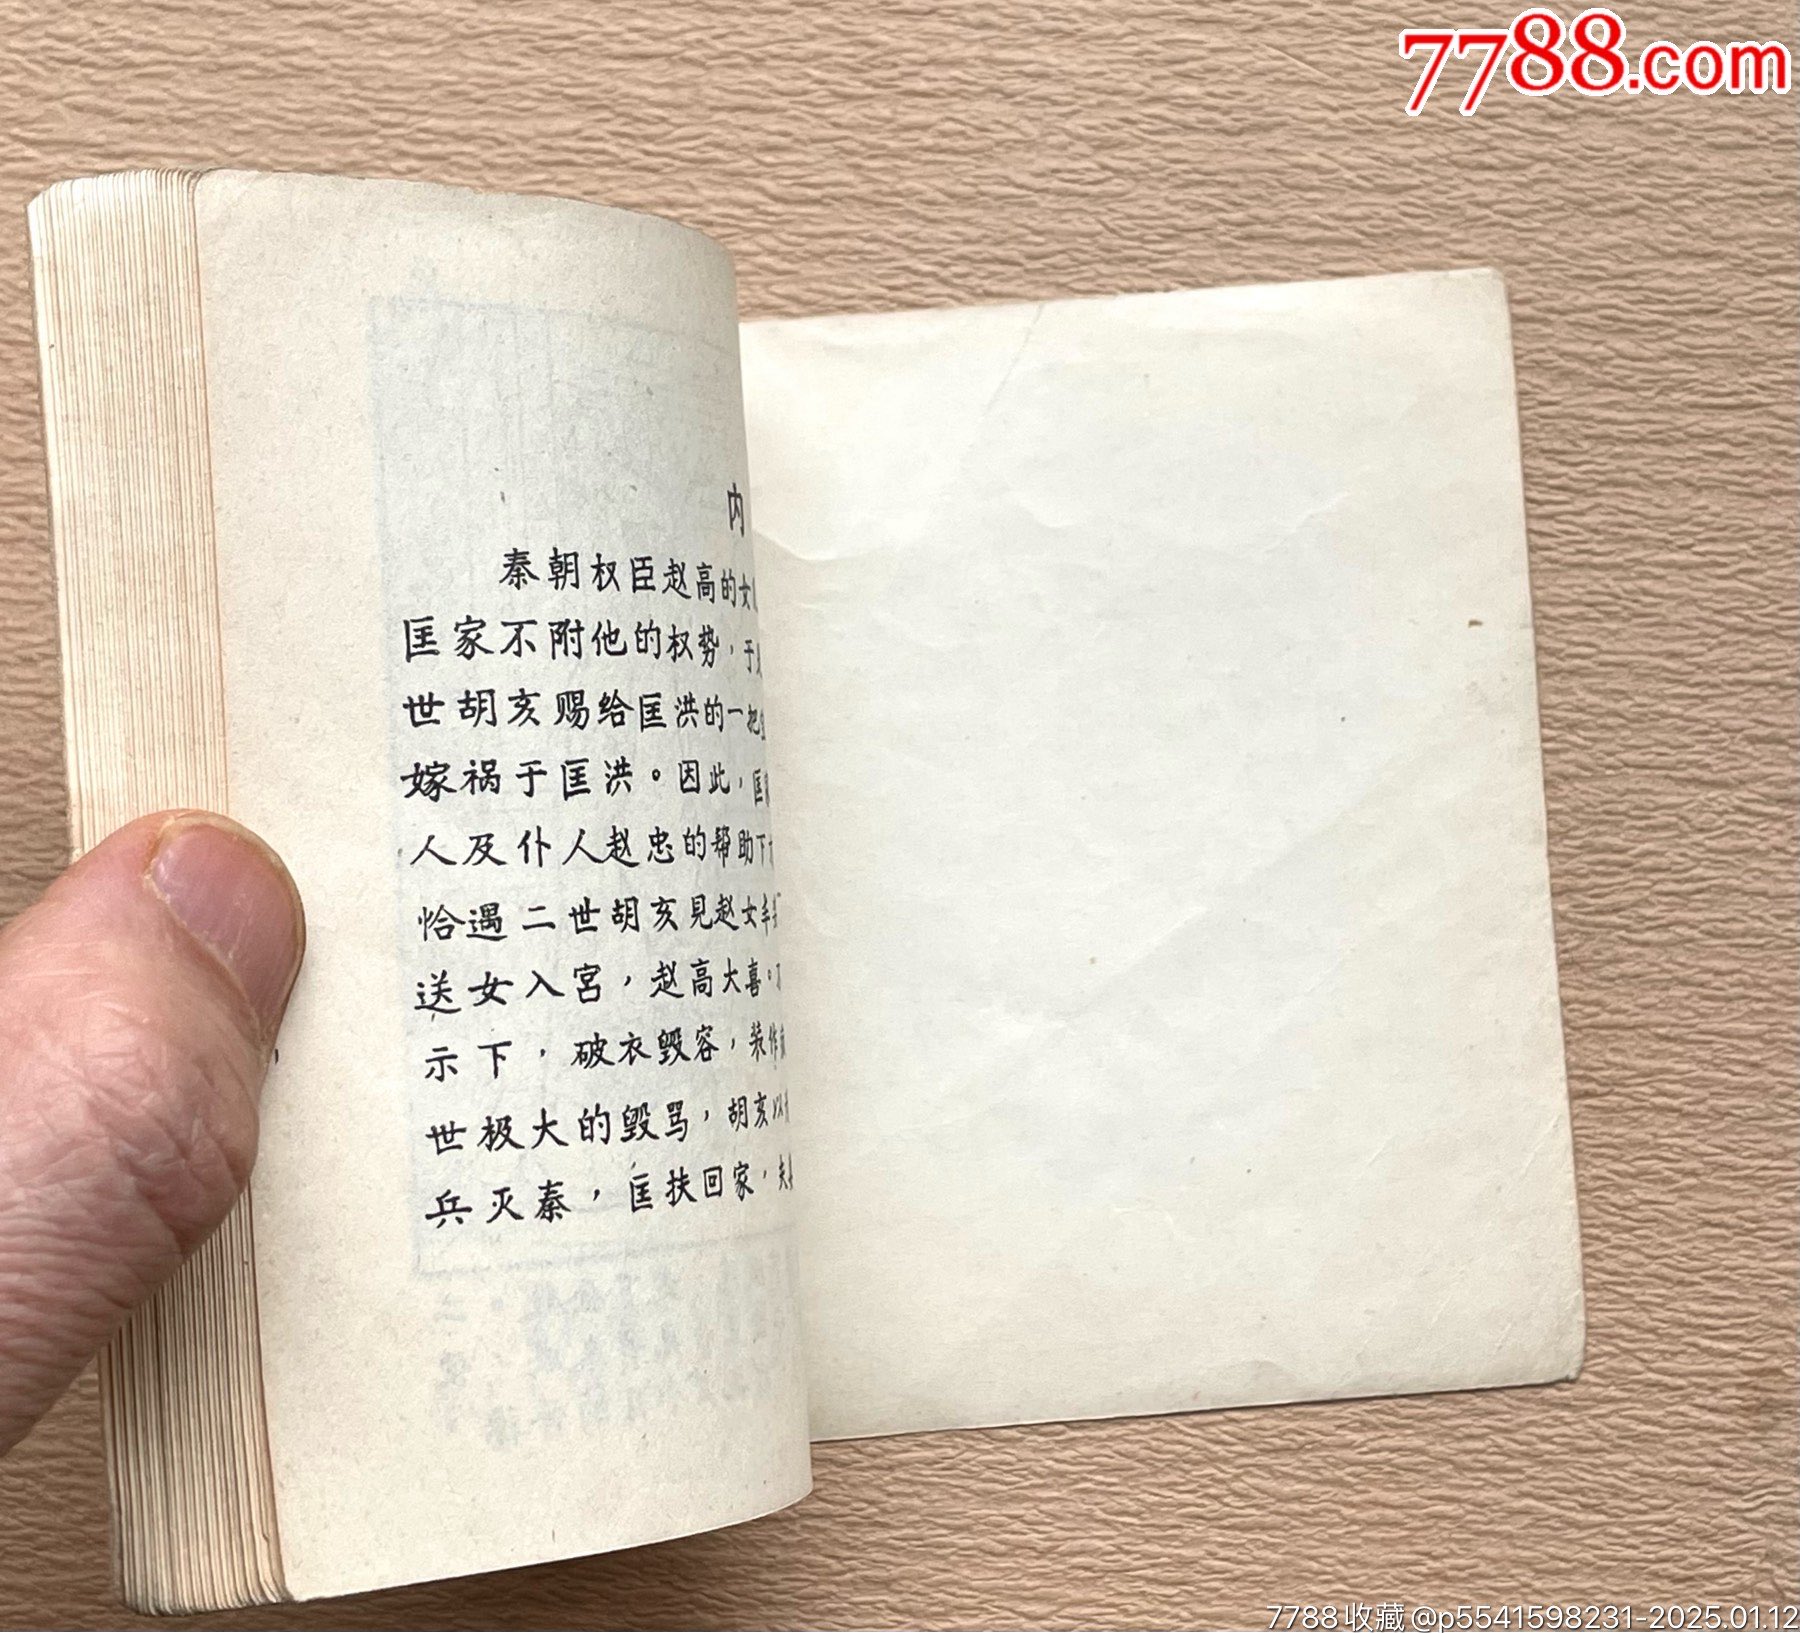 7788.com
内
秦朝权臣赵高的女
匡家不附他的权势，于
世胡亥赐给匡洪的一把
嫁祸于匡洪。因此，匡
人及仆人赵忠的帮助下
恰遇二世胡亥見赵女丰
送女入宮，赵高大喜。
示下，破衣毁容，装作
世极大的毁骂，胡亥以
兵灭秦，匡扶回家，夫
7788收藏@p5541598231-2025.01.12